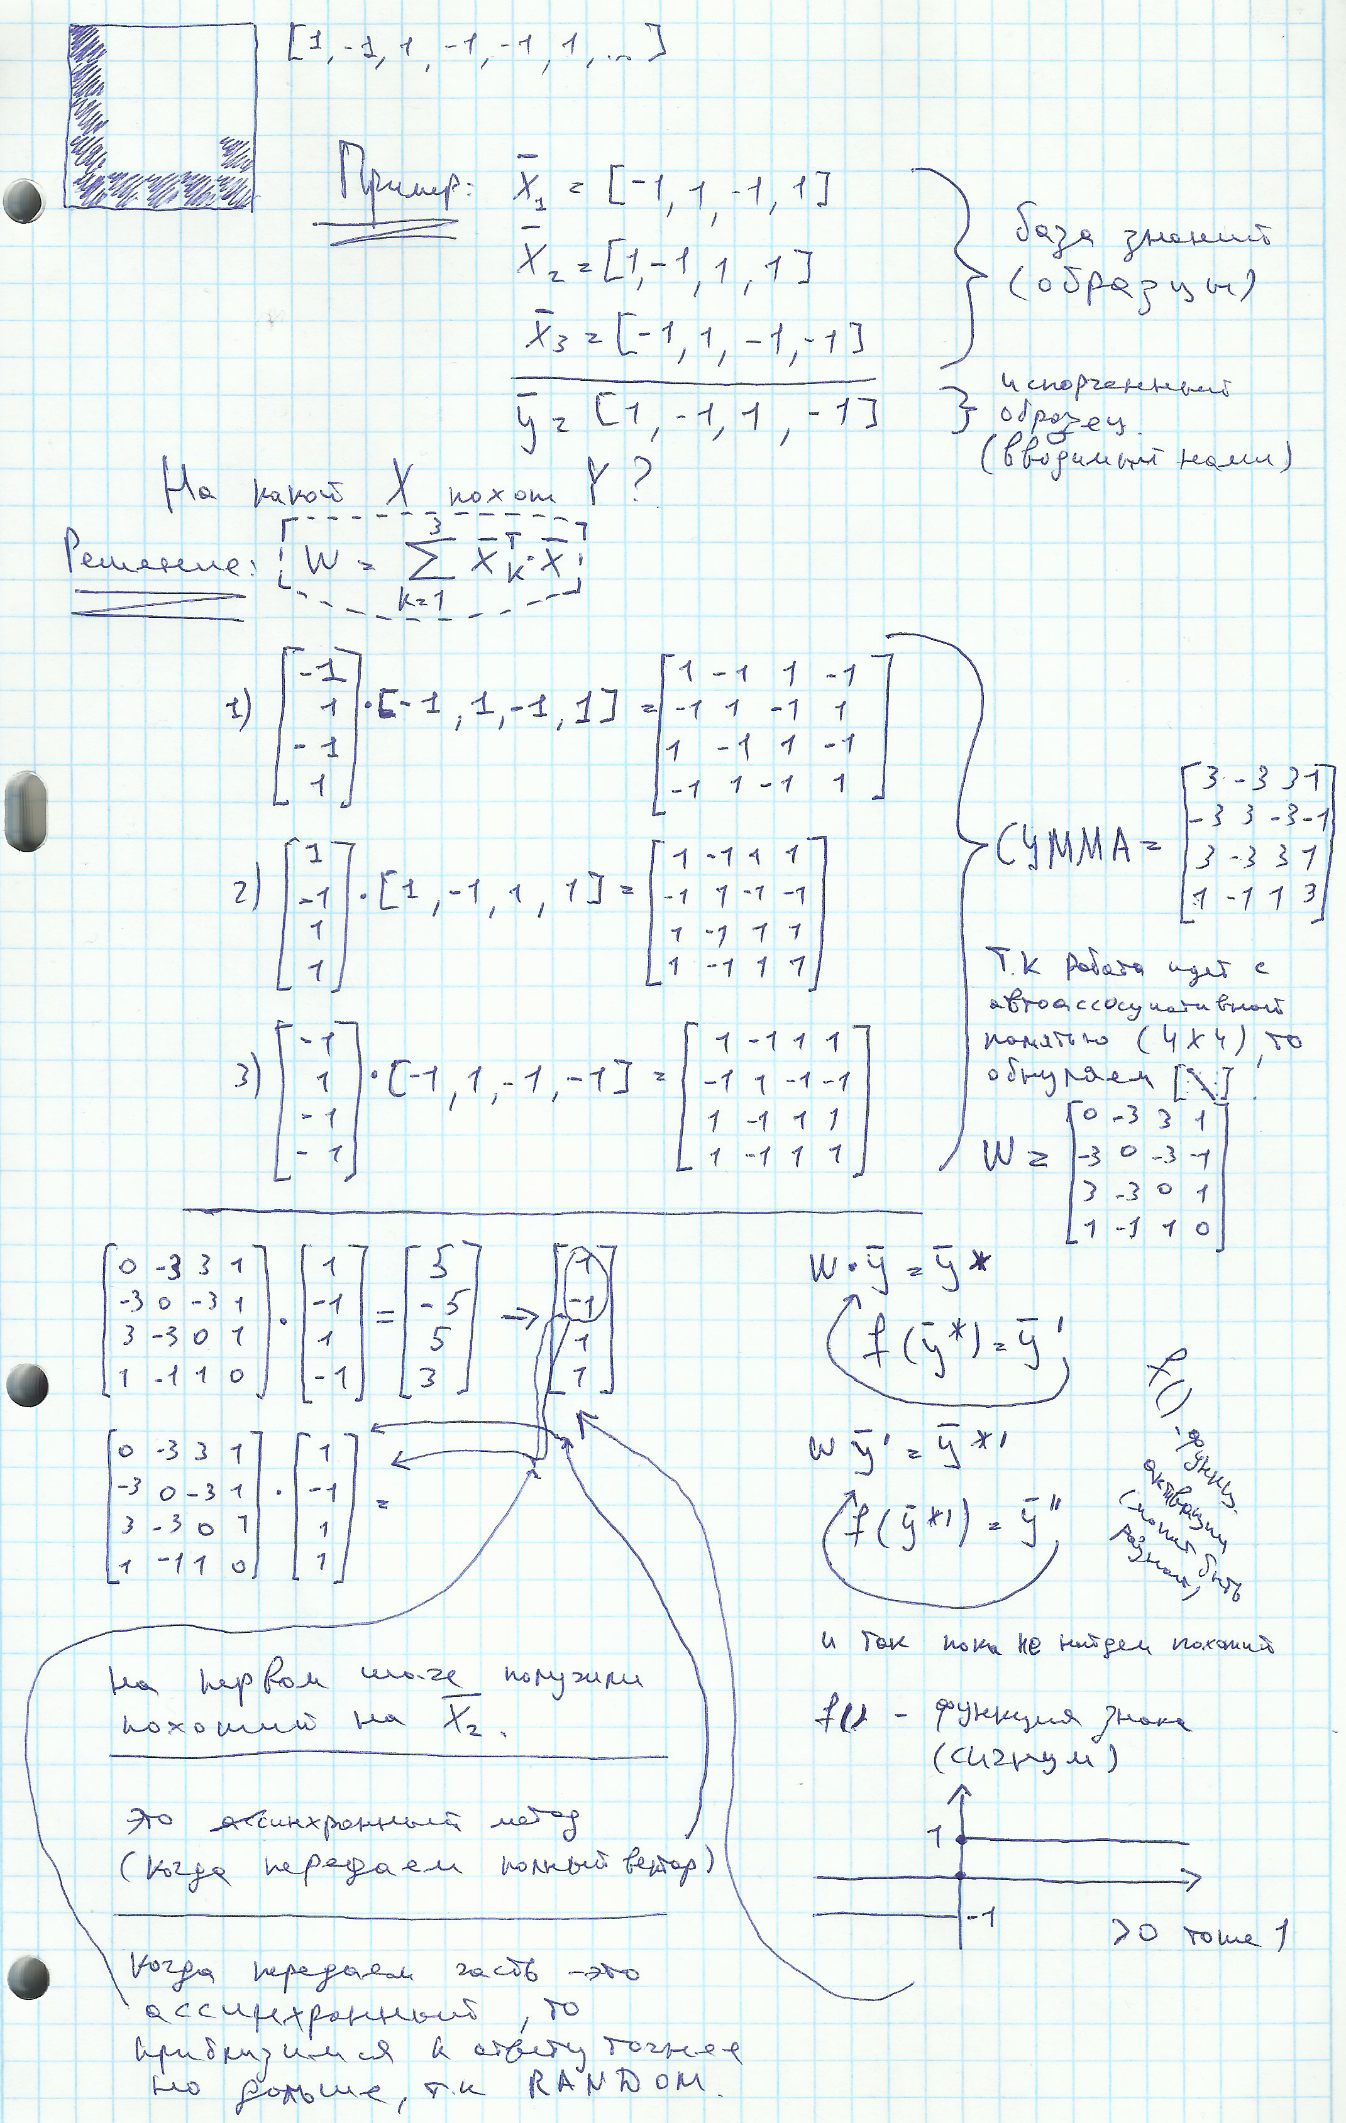 [1, -1, 1, -1, -1, 1, ...]
Пример: X̄₁ = [-1, 1, -1, 1]
X̄₂ = [1, -1, 1, 1]
X̄₃ = [-1, 1, -1, -1]
база знаний
(образцы)
ȳ = [1, -1, 1, -1]
испорченный
образец
(вводимый нами)
На какой X похож Y?
Решение: W = ∑ X̄ᵀₖ · X̄
3
k=1
1) [-1 1 -1 1] · [-1, 1, -1, 1] =
1 -1 1 -1
-1 1 -1 1
1 -1 1 -1
-1 1 -1 1
2) [1 -1 1 1] · [1, -1, 1, 1] =
1 -1 1 1
-1 1 -1 -1
1 -1 1 1
1 -1 1 1
3) [-1 1 -1 -1] · [-1, 1, -1, -1] =
1 -1 1 1
-1 1 -1 -1
1 -1 1 1
1 -1 1 1
СУММА =
3 -3 3 1
-3 3 -3 -1
3 -3 3 1
1 -1 1 3
Т.К работа идет с
автоассоциативной
памятью (4x4), то
обнуляем [\]
W =
0 -3 3 1
-3 0 -3 -1
3 -3 0 1
1 -1 1 0
0 -3 3 1
-3 0 -3 1
3 -3 0 1
1 -1 1 0
· [1 -1 1 -1] = [5 -5 5 3] → [1 -1 1 1]
0 -3 3 1
-3 0 -3 1
3 -3 0 1
1 -1 1 0
· [1 -1 1 1] =
W · ȳ = ȳ*
f(ȳ*) = ȳ'
W ȳ' = ȳ*'
f(ȳ*') = ȳ''
f()
- функц.
активации
(может быть
разная)
и так пока не найдем похожий
f() - функция знака
(сигнум)
1
-1
>0 тоже 1
На первом шаге получили
похожий на X̄₂.
это синхронный метод
(когда передаем полный вектор)
Когда передаем часть - это
ассинхронный, то
приблизимся к ответу точнее
но дольше, т.к RANDOM.